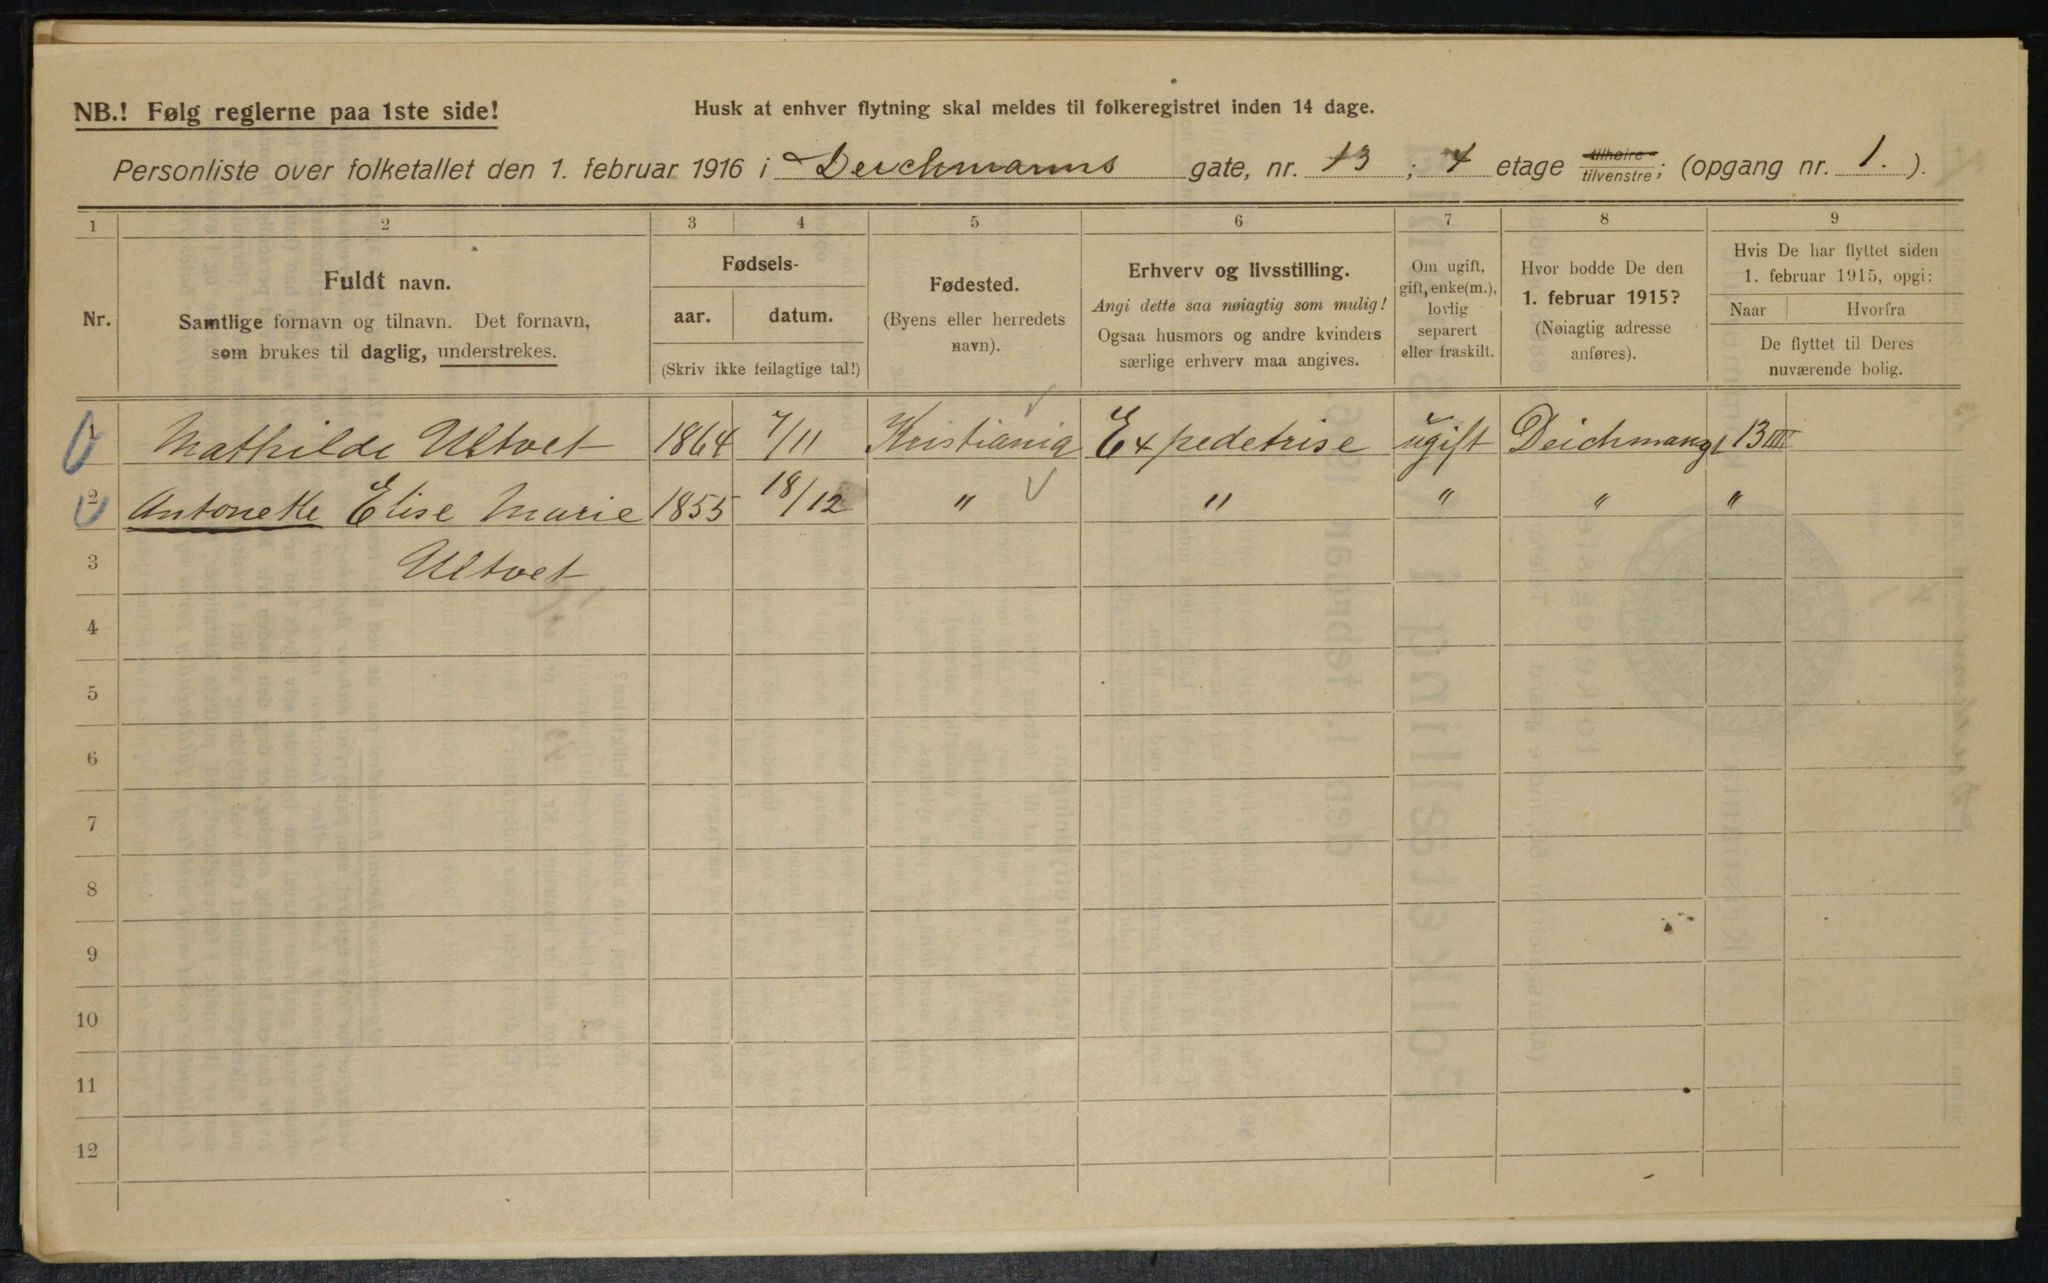 NB.! Følg reglerne paa 1ste side!
Husk at enhver flytning skal meldes til folkeregistret inden 14 dage.
Personliste over folketallet den 1. februar 1916 i Deichmanns gate, nr. 13 ; 4 etage tilhøire tilvenstre; (opgang nr. 1. ).
1 2 3 4 5 6 7 8 9
Nr.
Fuldt navn.
Samtlige fornavn og tilnavn. Det fornavn,
som brukes til daglig, understrekes.
Fødsels-
aar. datum.
(Skriv ikke feilagtige tal!)
Fødested.
(Byens eller herredets
navn).
Erhverv og livsstilling.
Angi dette saa nøiagtig som mulig!
Ogsaa husmors og andre kvinders
særlige erhverv maa angives.
Om ugift,
gift, enke(m.),
lovlig
separert
eller fraskilt.
Hvor bodde De den
1. februar 1915?
(Nøiagtig adresse
anføres).
Hvis De har flyttet siden
1. februar 1915, opgi:
Naar Hvorfra
De flyttet til Deres
nuværende bolig.
1 Mathilde Ultvet 1864 7/11 Kristiania Expedetrise ugift Deichmansgt 13 III
2 Antonette Elise Marie 1855 18/12 " " " " "
3 Ultvet
4
5
6
7
8
9
10
11
12